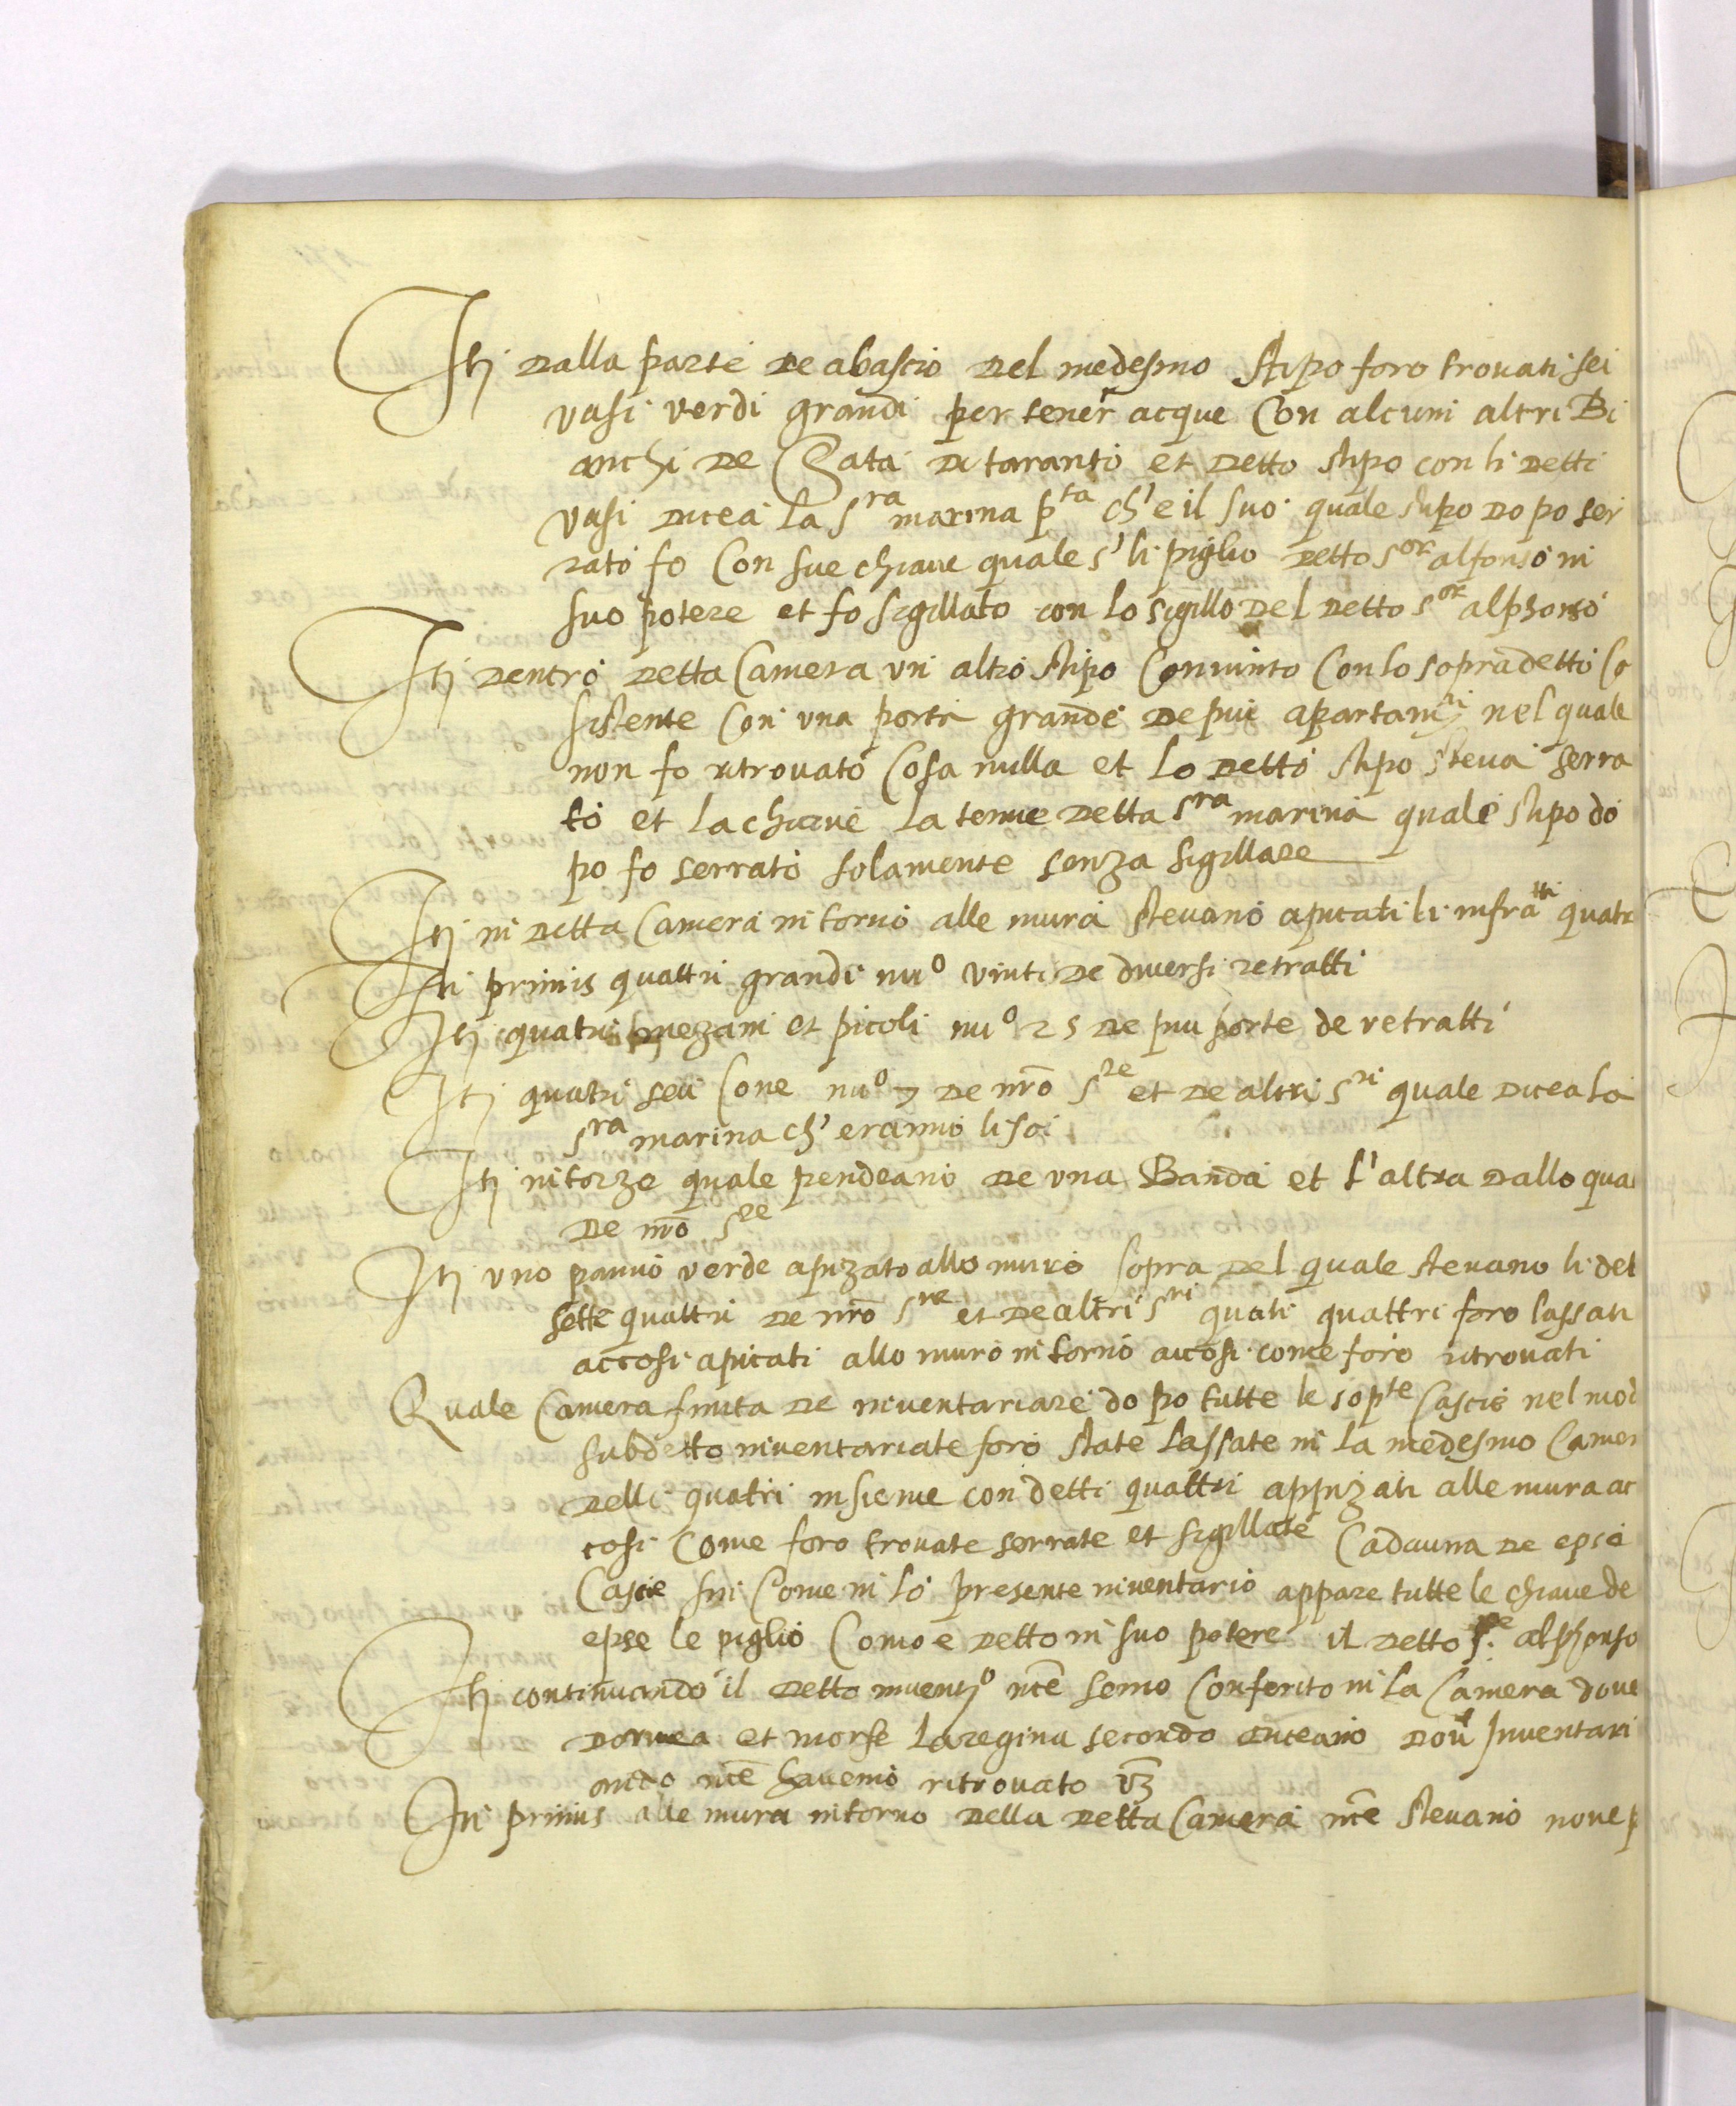 Itj dalla parte de abascio del medesmo stipo foro trouati sei
vasi verdi grandi per tener acque con alcuni altri Bi
anchi de Crata di taranto et detto stipo con li detti
vasi dicea la s.ra marina p.ta ch'e il suo quale stipo dopo ser
rato fo con sue chiaue quale s' li piglio detto s.or alfonso in
suo potere et fo sigillato con lo sigillo del detto s.or alphonso
Itj dentro detta Camera un altro stipo Coniunto Con lo sopradetto Co
sistente con una porta grande de piu apartam.ti nel quale
non fo ritrouato Cosa nulla et lo detto stipo steua serra
to et la chiaue la tenne detta s.ra marina quale stipo do
po fo serrato solamente senza sigillare
Itj in detta Camera intorno alle mura steuano apicati li infra.tti quatr
In primis quattri grandi nu.o vinti de diuersi retratti
Itj quatri mezani et picoli nu.o 25 de piu sorte de retratti
Itj quatri seu Cone nu.o 7 de nr̃o s.re et de altri s.ri quale dicea la
s.ra marina ch' eranno li soi
Itj intorze quale pendeano de una Banda et l'altra dallo qua
de nr̃o s.re
Itj uno panno verde apizato allo muro sopra del quale steuano li det
sette quattri de nr̃o s.re et de altri s.ri quali quattri foro lassati
accosi apicati allo muro intorno accosi come foro ritrouati
Quale Camera finita de inuentariare dopo tutte le sop.te Cascie nel mod
subdetto inuentariate foro state lassate in la medesmo Camer
delli quatri insieme con detti quattri appizati alle mura ac
cosi Come foro trouate serrate et sigillate Cadauna de epse
Cascie sin Come in lo presente inuentario appare tutte le chiaue de
epse le piglio Como e detto in suo potere il detto s.re alphonso
Itj continuando il detto inuent.o me͂ semo Conferito in la Camera doue
dormea et morse la regina secondo diceano doue Inuentari
ando me͂ hauemo ritrouato vz
In primis alle mura intorno della detta Camera me͂ steuano noue p